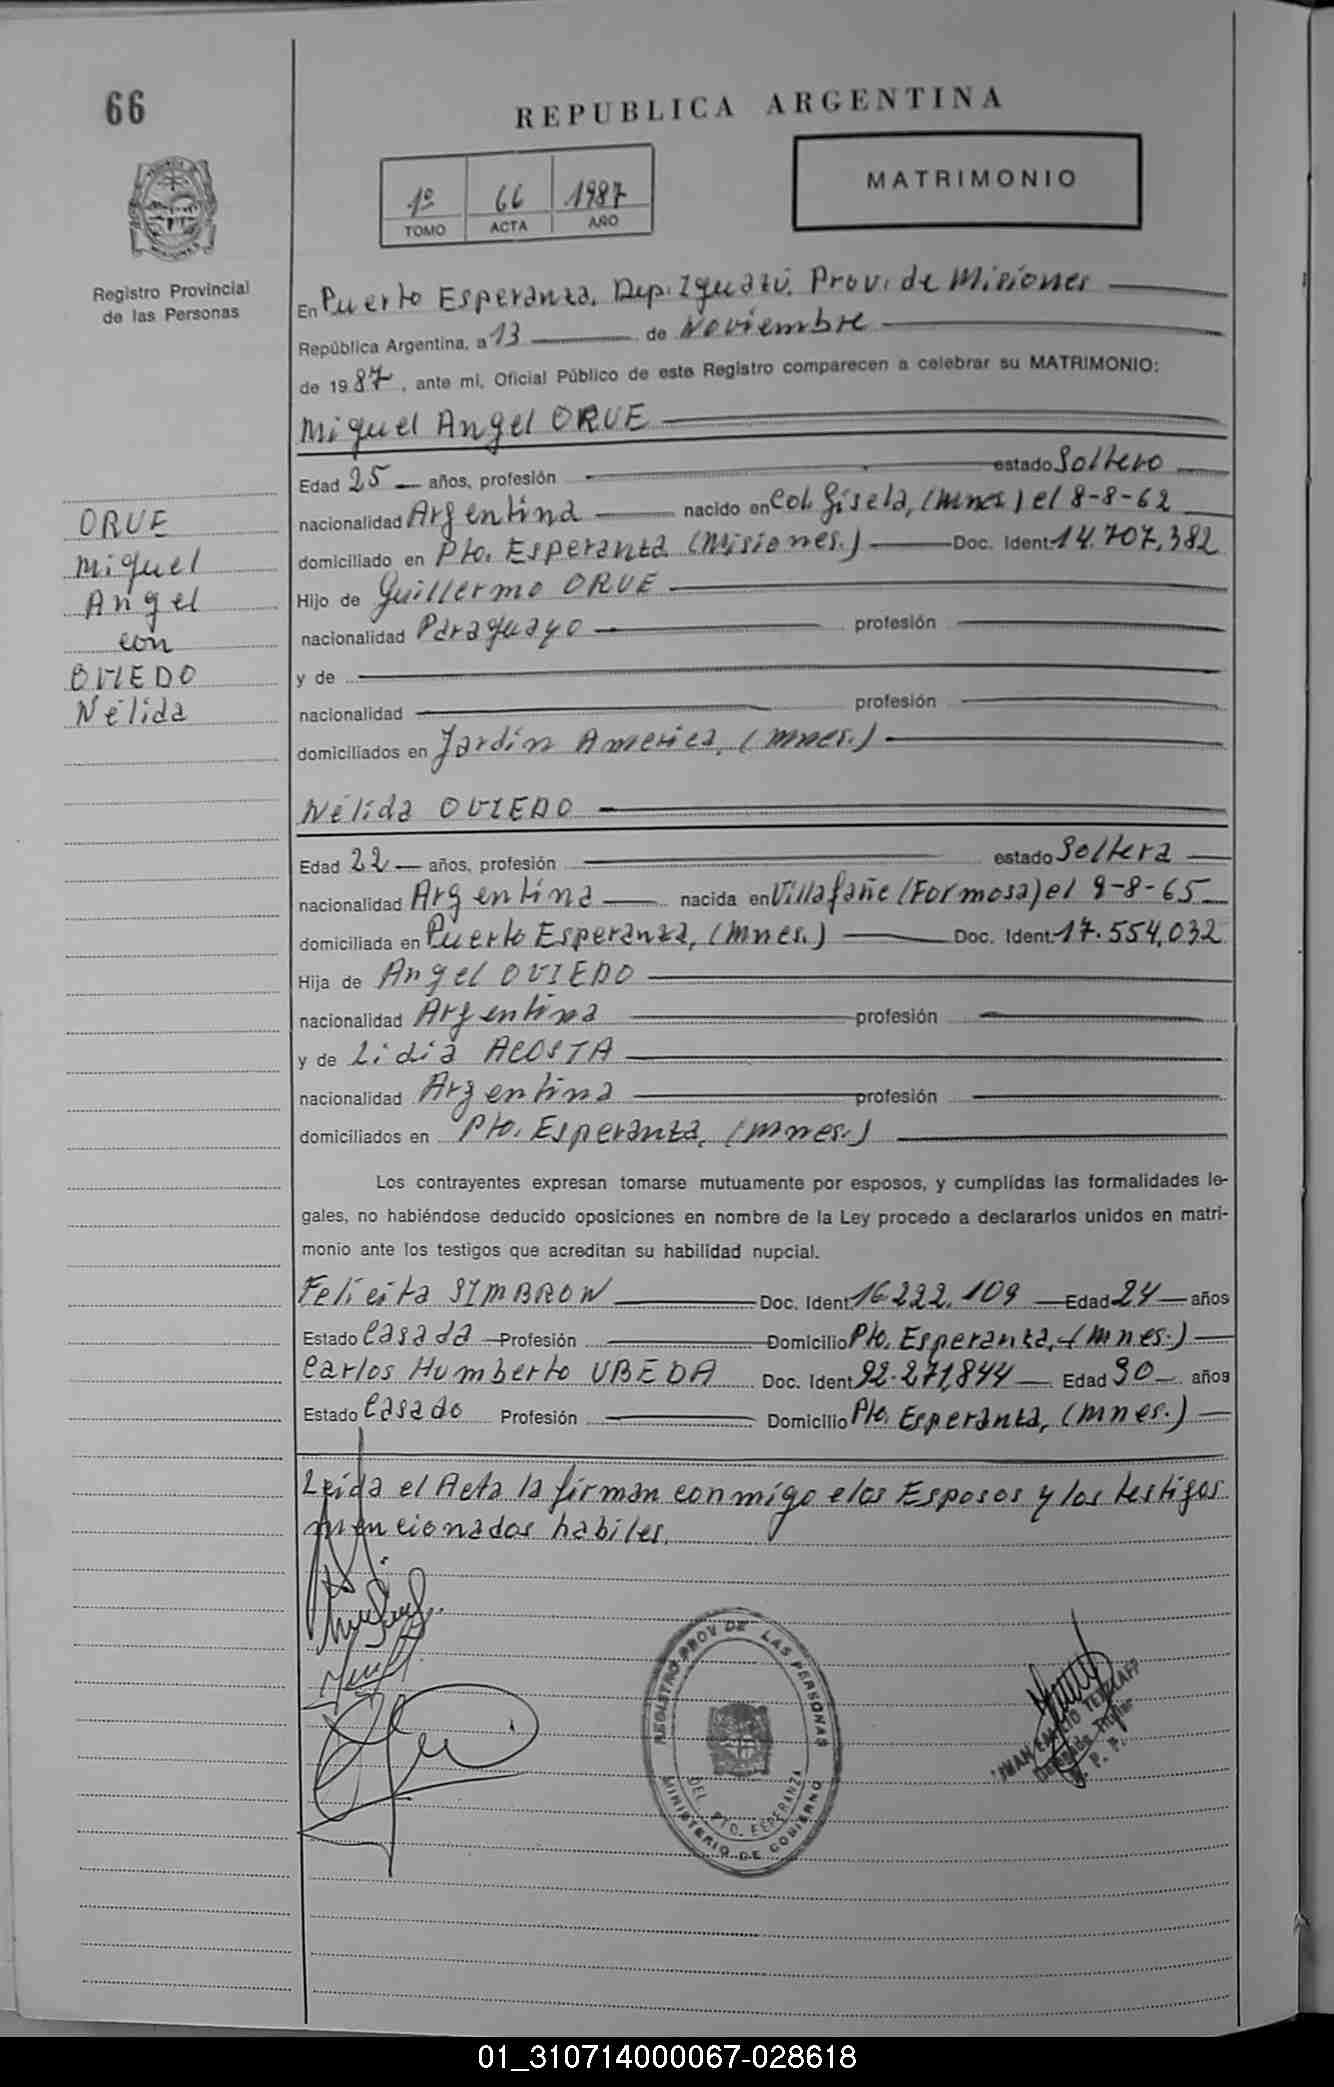 66
REPUBLICA ARGENTINA
1º 66 1987
TOMO ACTA AÑO
MATRIMONIO
Registro Provincial
de las Personas
En Puerto Esperanza, Dep. Iguazú, Prov. de Misiones
República Argentina, a 13 de Noviembre
de 1987, ante mi, Oficial Público de este Registro comparecen a celebrar su MATRIMONIO:
Miguel Angel ORUE
Edad 25 años, profesión estado Soltero
nacionalidad Argentina nacido en Col. Gisela, (Mnes.) el 8-8-62
domiciliado en Pto. Esperanza (Misiones.) Doc. Ident. 14.707,382
Hijo de Guillermo ORUE
nacionalidad Paraguayo profesión
y de
nacionalidad profesión
domiciliados en Jardín America, (Mnes.)
Nélida OVIEDO
Edad 22 años, profesión estado Soltera
nacionalidad Argentina nacida en Villafañe (Formosa) el 9-8-65
domiciliada en Puerto Esperanza, (Mnes.) Doc. Ident. 17.554,032
Hija de Angel OVIEDO
nacionalidad Argentina profesión
y de Lidia ACOSTA
nacionalidad Argentina profesión
domiciliados en Pto. Esperanza, (Mnes.)
Los contrayentes expresan tomarse mutuamente por esposos, y cumplidas las formalidades le-
gales, no habiéndose deducido oposiciones en nombre de la Ley procedo a declararlos unidos en matri-
monio ante los testigos que acreditan su habilidad nupcial.
Felicita SIMBRON Doc. Ident. 16.222.109 Edad 24 años
Estado Casada Profesión Domicilio Pto. Esperanza, (Mnes.)
Carlos Humberto UBEDA Doc. Ident. 92.271,844 Edad 30 años
Estado Casado Profesión Domicilio Pto. Esperanza, (Mnes.)
Leída el Acta la firman conmigo elos Esposos y los testigos
mencionados habiles.
ORUE
Miguel
Angel
con
OVIEDO
Nélida
REGISTRO PROV DE LAS PERSONAS
DEL. PTO. ESPERANZA
MINISTERIO DE GOBIERNO
JUAN EMILIO
Delegado Titular
R. P. P.
01_310714000067-028618